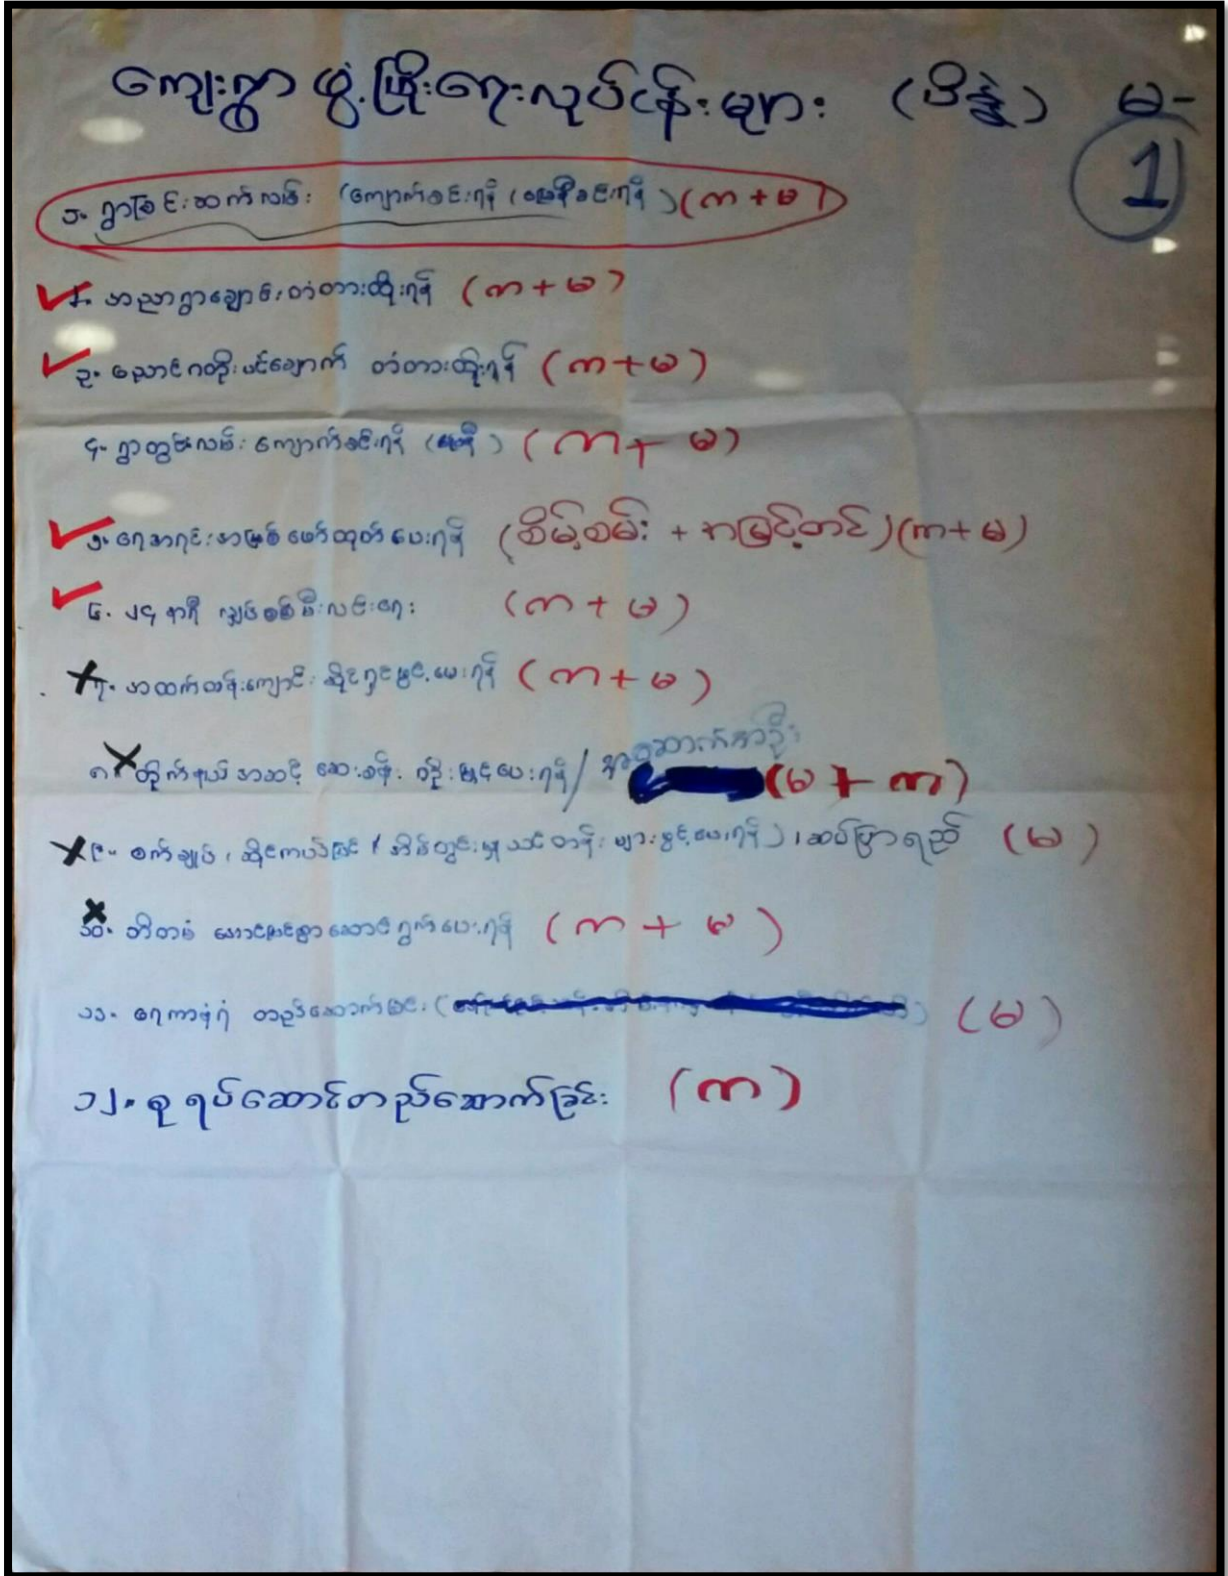 ကျေးရွာ ဖွံ့ဖြိုးရေးလုပ်ငန်းများ (ပိန္နဲ) မ-
1
၁။ ရွာခြင်းဆက်လမ်း (ကျောက်ခင်းရန် (မြေနီခင်းရန်) (က + မ)
၂။ အညာရွာချောင်းတံတားထိုးရန် (က + မ)
၃။ ညောင်ဂတိုးပင်ချောက် တံတားထိုးရန် (က + မ)
၄။ ရွာတွင်းလမ်း ကျောက်ခင်းရန် (က + မ)
၅။ ရေအရင်းအမြစ်ဖော်ထုတ်ပေးရန် (စိမ့်စမ်း + အမြင့်တင်) (က + မ)
၆။ ၂၄ နာရီ လျှပ်စစ်မီးလင်းရေး (က + မ)
၇။ အထက်တန်းကျောင်း ဖွင့်ပေးရန် (က + မ)
၈။ တိုက်နယ်အဆင့် ဆေးခန်း ပေးရန် / (မ + က)
၉။ စက်ချုပ်၊ ဆိုင်ကယ်ပြင် (အိမ်တွင်းမှုသင်တန်းများဖွင့်ပေးရန်)၊ ဆပ်ပြာရည် (မ)
၁၀။ ဘိတာမံ အောင်မြင်စွာဆောင်ရွက်ပေးရန် (က + မ)
၁၁။ ရေကာဖုံရံ တည်ဆောက်ခြင်း (မ)
၁၂။ စု ရပ်ဆောင်တည်ဆောက်ခြင်း (က)